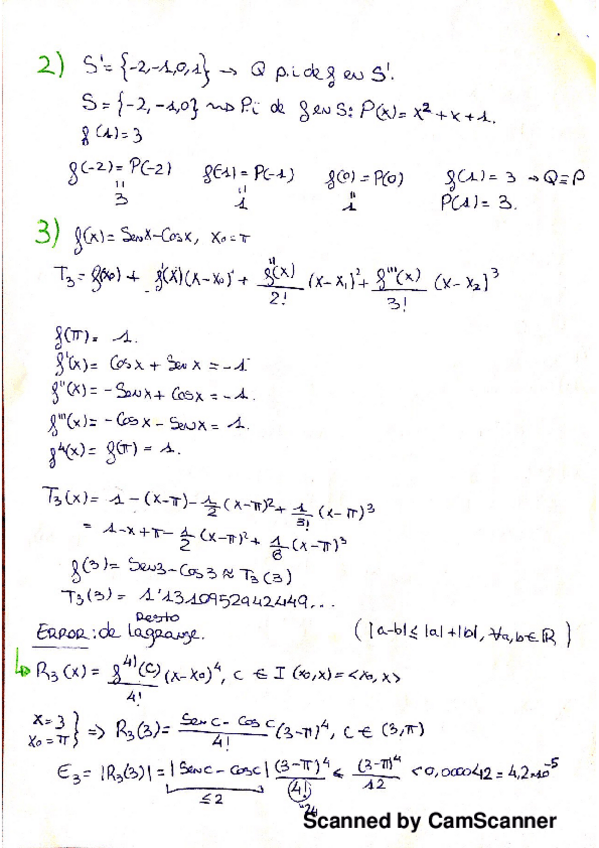 2) S' = {-2,-1,0,1} → Q p.i de f en S'.
S = {-2,-1,0} ~> P.i de f en S: P(x) = x² + x + 1.
f(1) = 3
f(-2) = P(-2) f(-1) = P(-1) f(0) = P(0) f(1) = 3 → Q ≡ P
" " " P(1) = 3.
3 1 1
3) f(x) = Sen x - Cos x, x₀ = π
T₃ = f(x₀) + f'(x)(x-x₀)' + f''(x)/2! (x-x₁)² + f'''(x)/3! (x-x₂)³
f(π) = 1.
f'(x) = Cos x + Sen x = -1
f''(x) = -Sen x + Cos x = -1.
f'''(x) = -Cos x - Sen x = 1.
f⁴(x) = f(π) = 1.
T₃(x) = 1 - (x-π) - 1/2 (x-π)² + 1/3! (x-π)³
= 1 - x + π - 1/2 (x-π)² + 1/6 (x-π)³
f(3) = Sen 3 - Cos 3 ≈ T₃(3)
T₃(3) = 1'131095294 2449...
Resto
ERROR: de Lagrange. (|a-b| ≤ |a| + |b|, ∀a,b ∈ ℝ)
↳ R₃(x) = f⁴⁾(c)/4! (x-x₀)⁴, c ∈ I(x₀,x) = <x₀,x>
x = 3
x₀ = π } => R₃(3) = Sen c - Cos c/4! (3-π)⁴, c ∈ (3,π)
E₃ = |R₃(3)| = |Sen c - cos c| (3-π)⁴/4! ≤ (3-π)⁴/12 < 0,000042 = 4,2·10⁻⁵
≤ 2 "24
Scanned by CamScanner